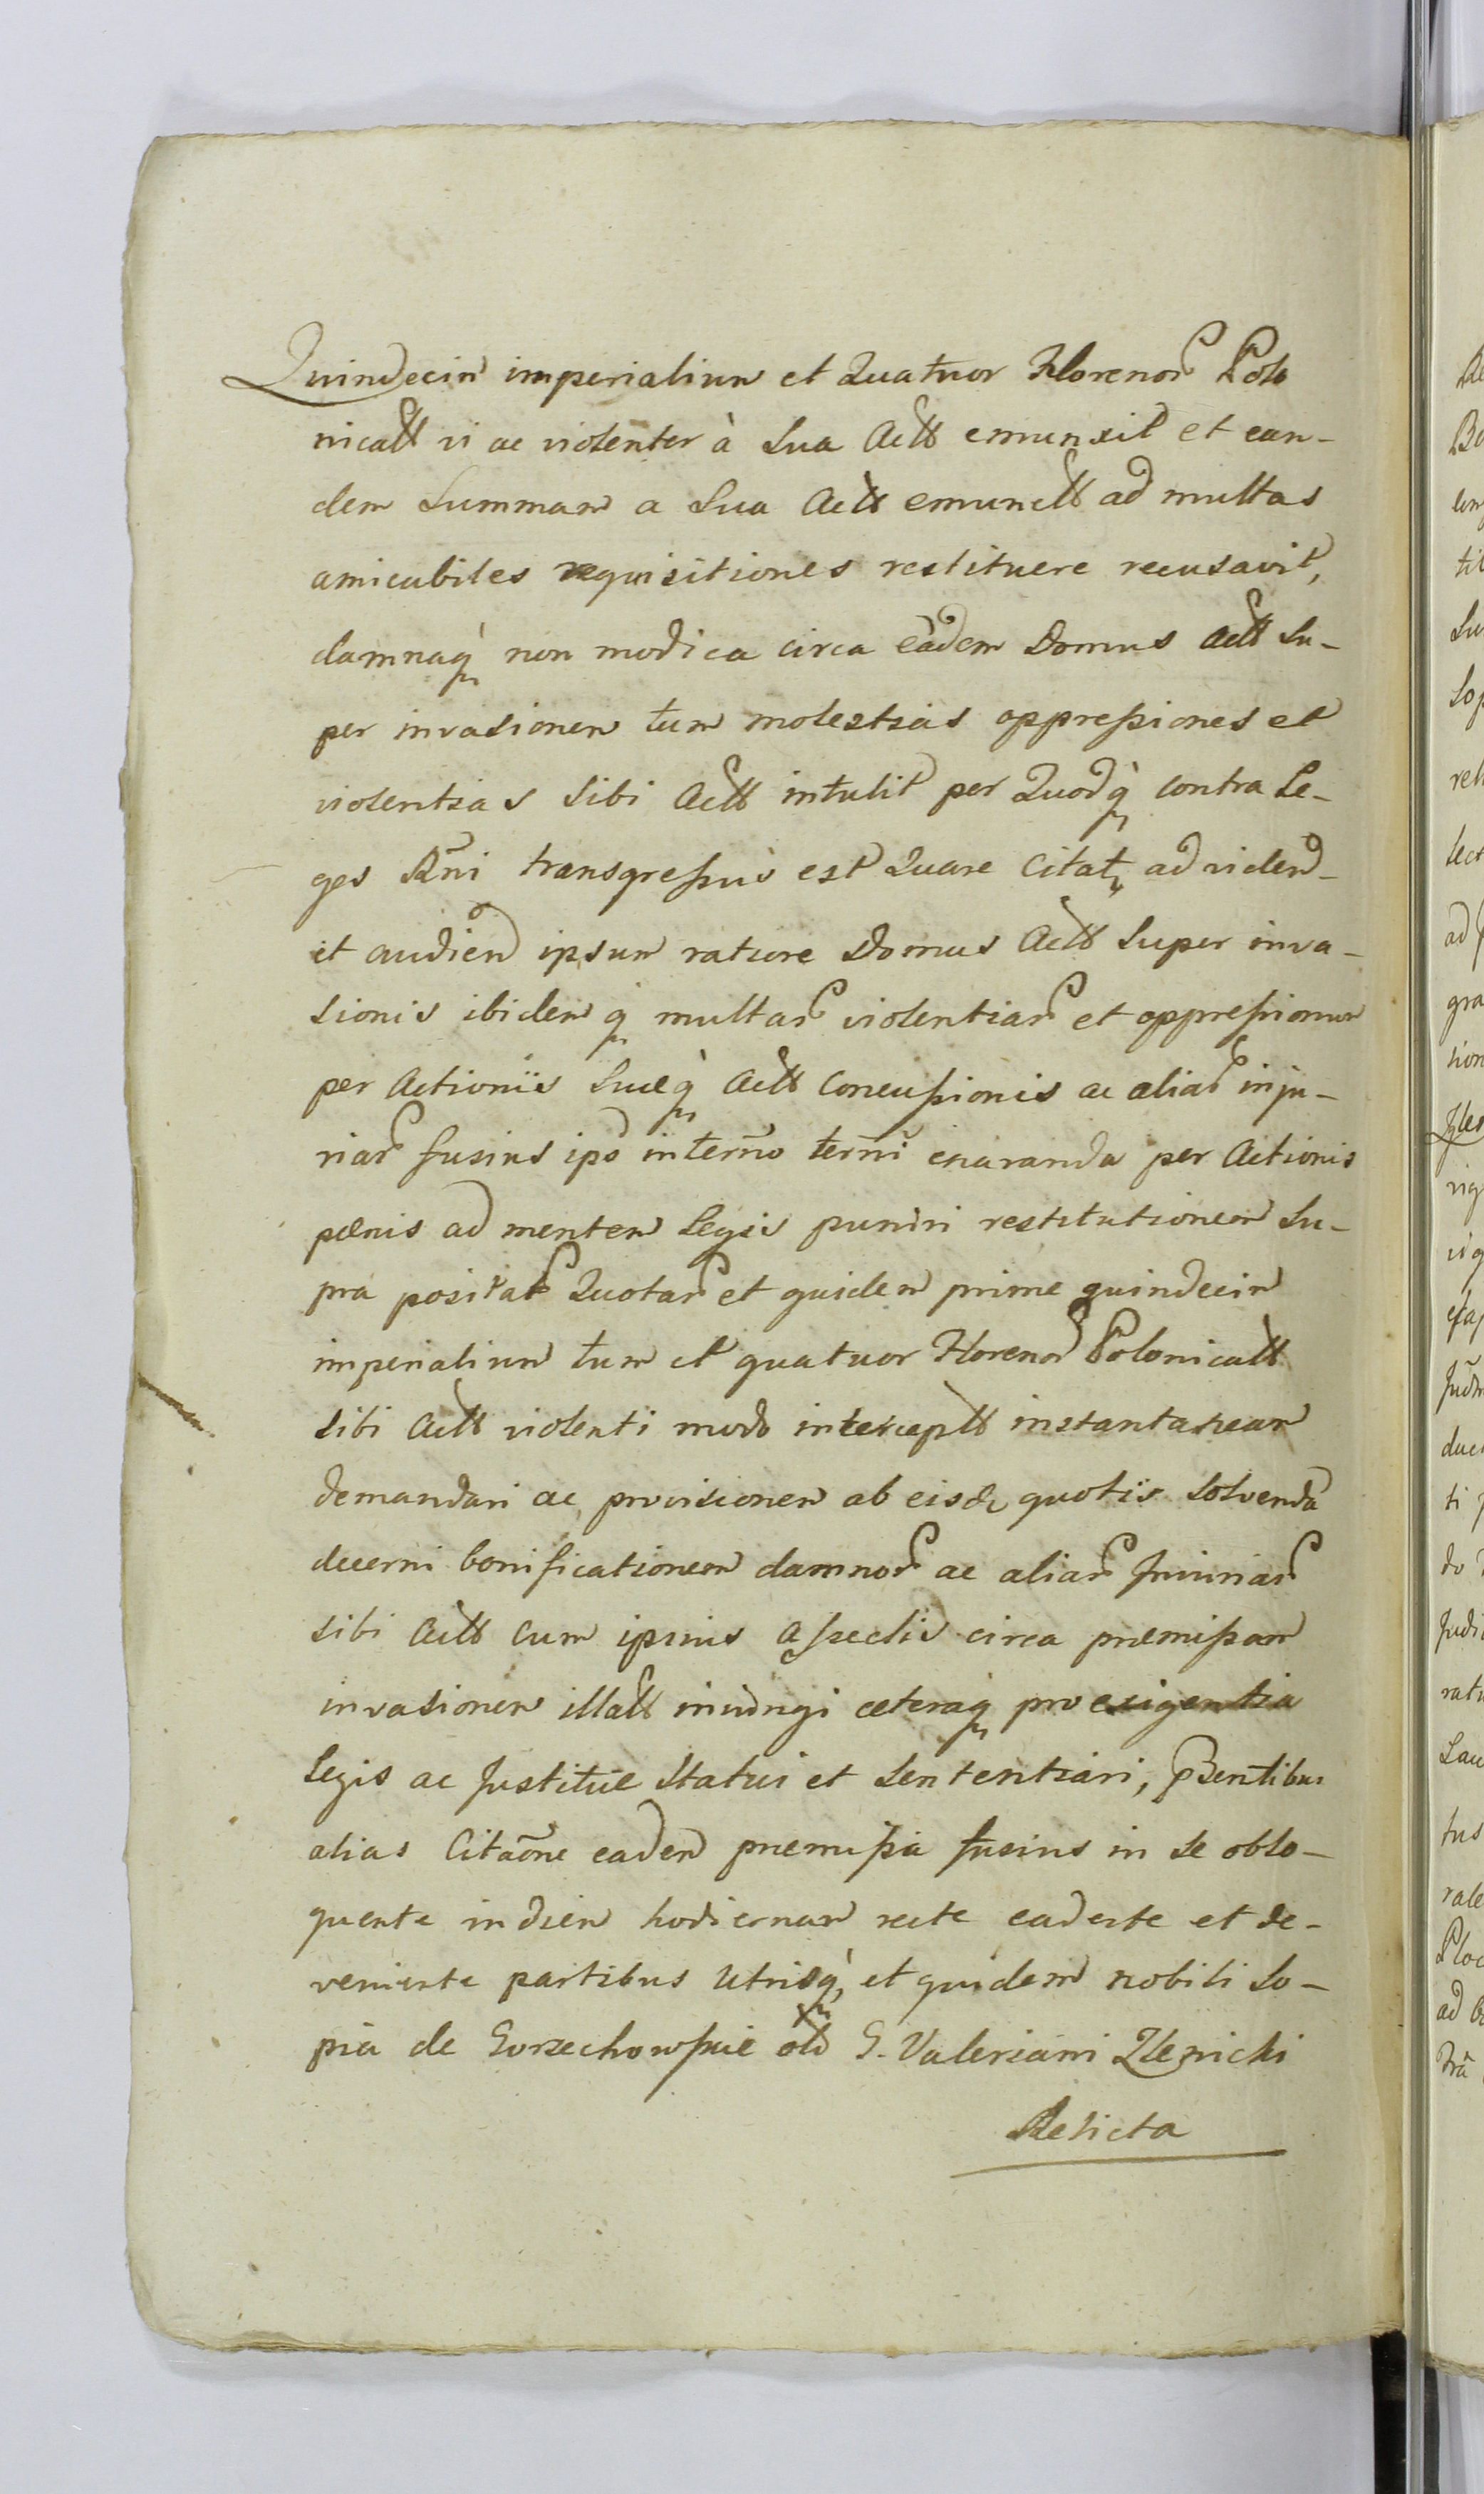 Quindecim imperialium et Quatuor Florenor Polo
nicall vi ac violenter à Sua Actt emunxit et ean-
dem Summam a Sua Actt emunctt ad multas
amicabiles requisitiones restituere recusavit,
damnaq̀ non modica circa eãdem Domus Actt Su-
per invasionem tum molestias oppressiones et
violentias Sibi Actt intulit per Quodq̀ contra Le-
ges Rñi transgressus est Quare Citat ad vidend-
et audiend ipsum ratione Domus Actt Super inva-
sionis ibidem q multar violentiar et oppressionum
per Actioniis Suæq̀ Actt Concussionis ac aliar inju-
riar fusius ipso in termõ termi enaranda per Actionis
pænis ad mentem Legis puniri restitutionem Su-
pra positar Quotar et quidem prime quindecim
imperialium tum et quatuor Florenor Polonicall
sibi Actt violenti modo interceptt instantaneam
demandari ac provisionem ab eisd quotis solvenda
decerni bonificationem damnor ac aliar Injuriar
sibi Actt cum ipsius Asseclis circa præmissam
invasionem illatt iniungi cæteraq pro exigentia
Legis ac Justitiæ Statui et Sententiari, pSentibus
alias Citaõne eadem præmissa fusius in se oblo-
quente in diem hodiernam recte cadente et de-
veniente partibus Utrisq̀, et quidem nobili So-
phia de Gorzechowskie olid G. Valeriani Zlenicki
Relicta